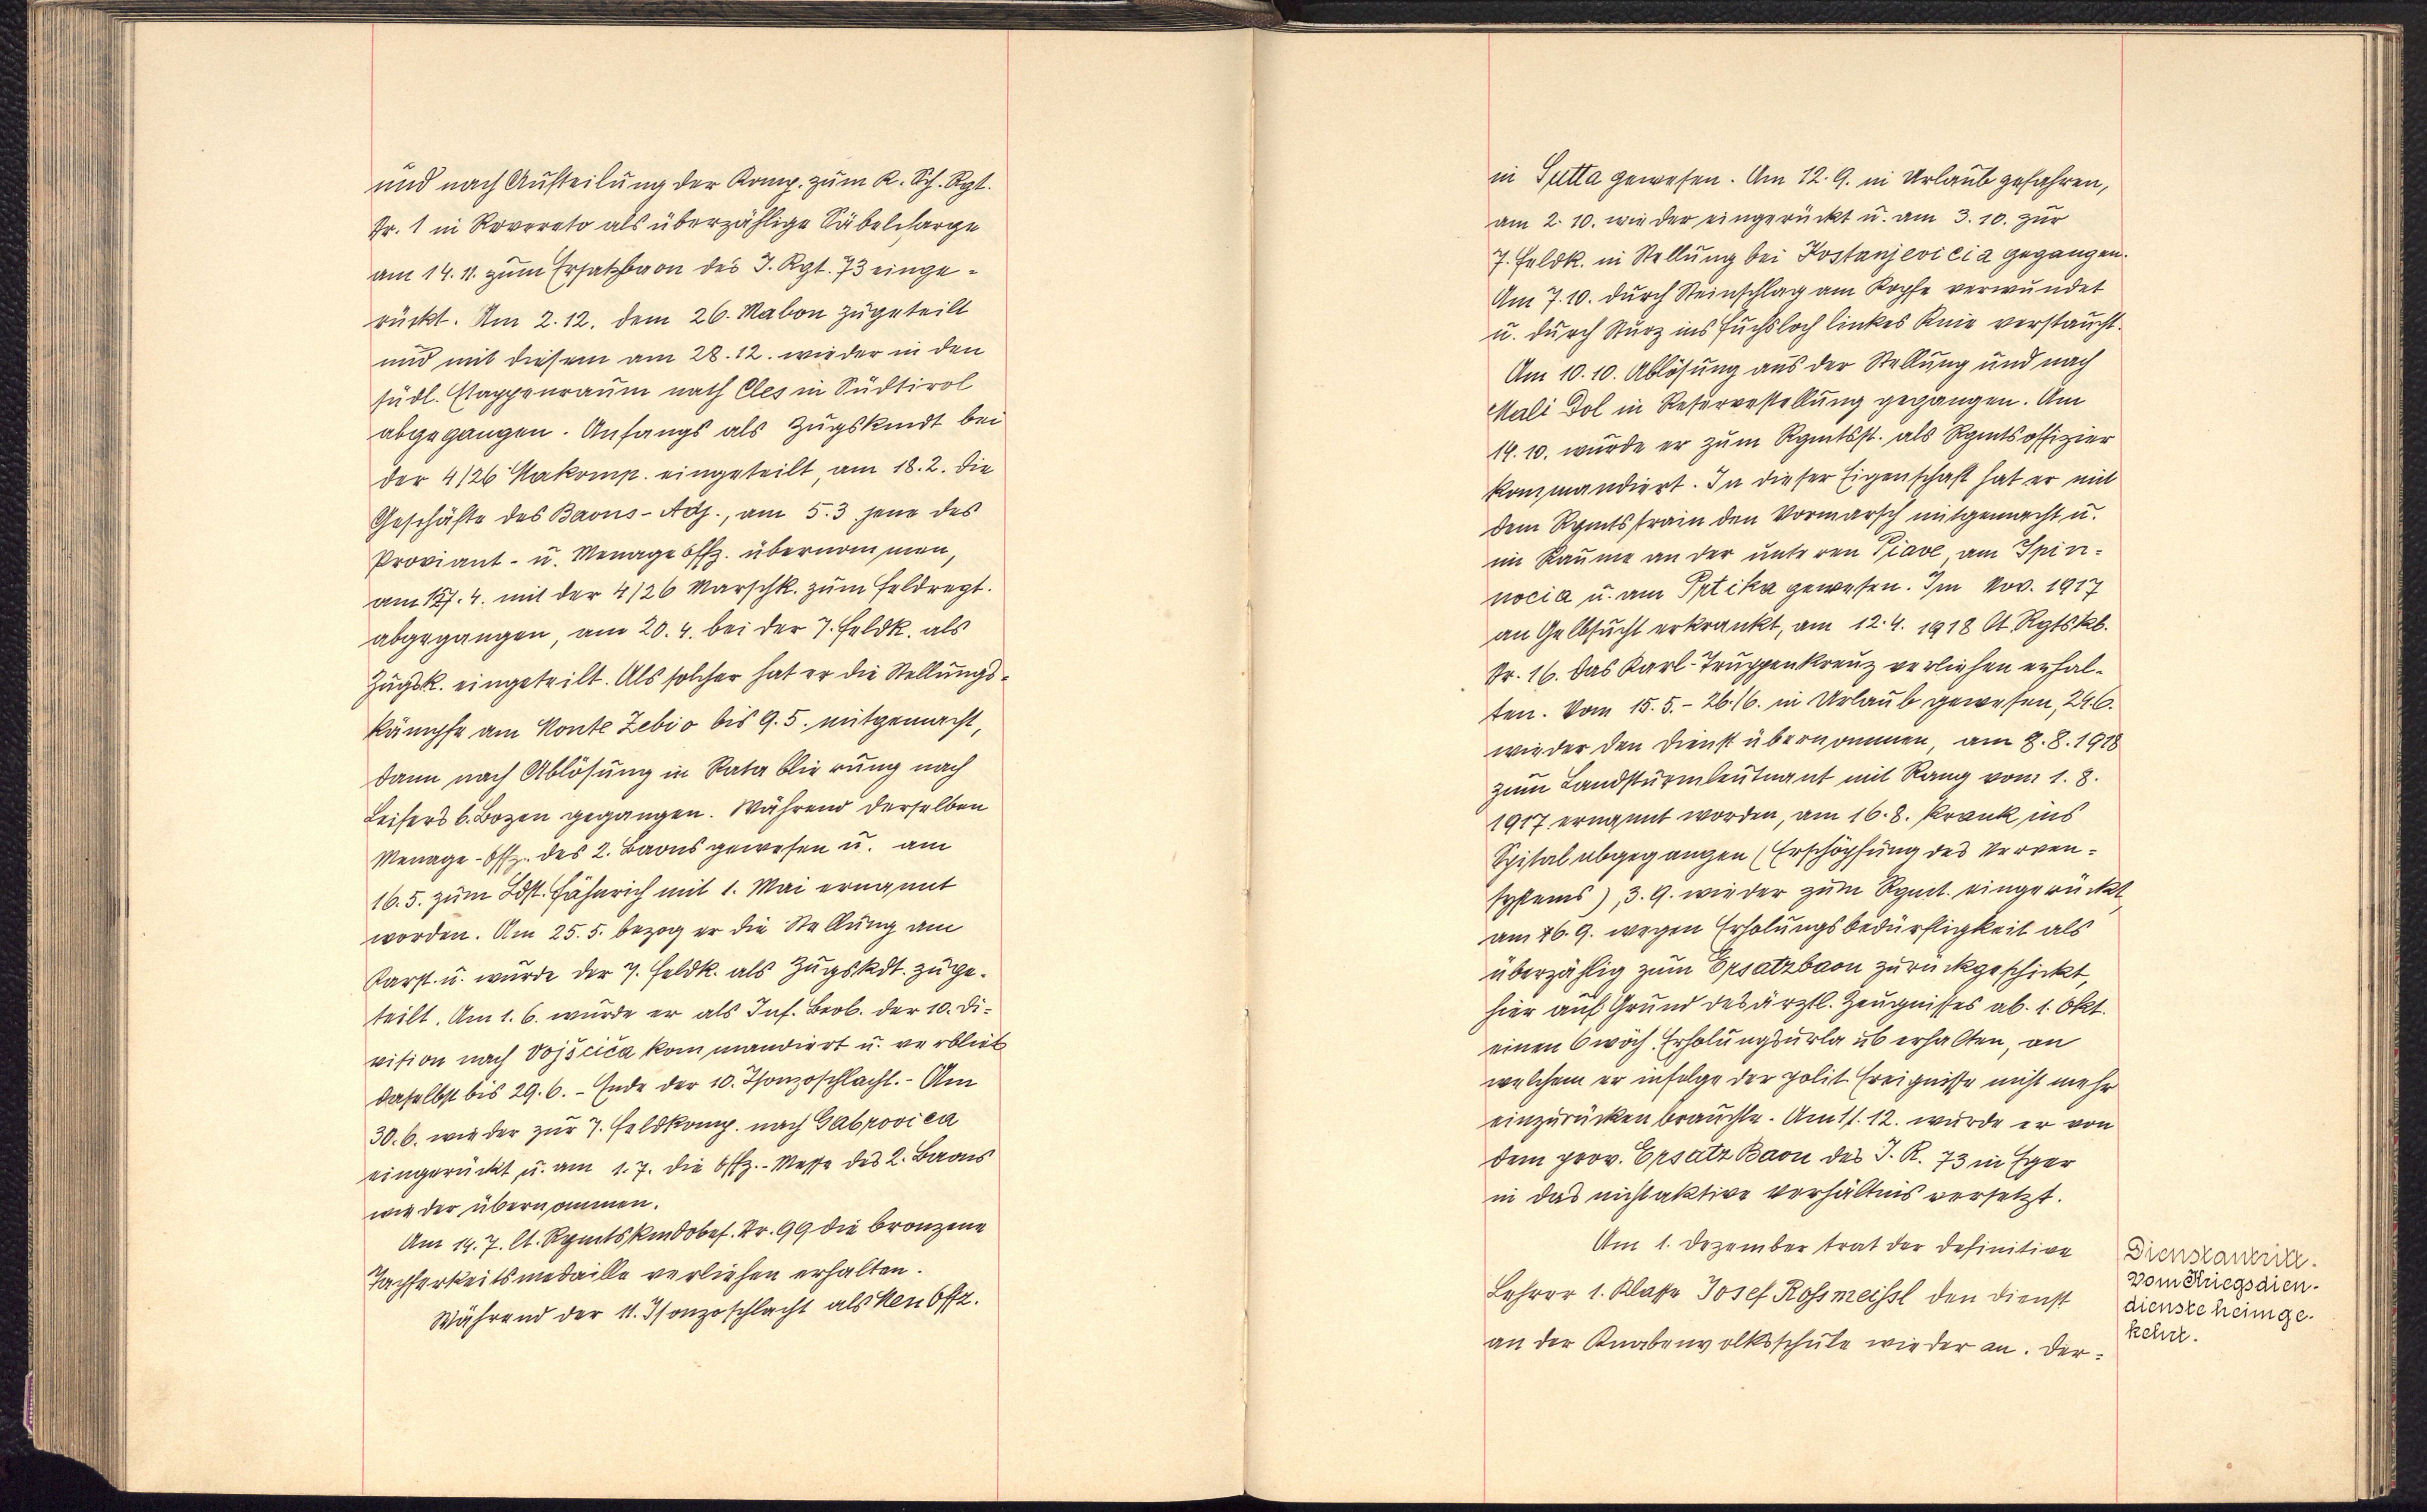 und nach Aufteilung der Komp. zum K. Sch. Rgt.
Nr. 1 in Rovereto als überzählige Säbelcharge
am 14. 11. zum Ersatzbaon des I. Rgt. 73 einge-
rückt. Am 2. 12. dem 26. Mabon zugeteilt
und mit diesem am 28. 12. wieder in den
südl. Etappenraum nach Cles in Südtirol
abgegangen. Anfangs als Zugskmdt bei
der 4/26 Makomp. eingeteilt, am 18. 2. die
Geschäfte des Baons-Adj., am 5. 3 jene des
Proviant- u. Menageoffz. übernommen,
am 17. 4. mit der 4/26 Marschk. zum Feldregt.
abgegangen, am 20. 4. bei der 7. Feldk. als
Zugsk. eingeteilt. Als solcher hat er die Stellungs-
kämpfe am Monte Zebio bis 9. 5. mitgemacht,
dann nach Ablösung in Retablierung nach
Leifers b. Bozen gegangen. Während derselben
Menage-Offz. des 2. Baons gewesen u. am
16. 5. zum Ldst. Fähnrich mit 1. Mai ernannt
worden. Am 25. 5. bezog er die Stellung am
Karst u. wurde der 7. Feldk. als Zugskdt. zuge-
teilt. Am 1. 6. wurde er als Inf. Beob. der 10. Di-
vision nach Vojščica kommandiert u. verblieb
daselbst bis 29. 6. - Ende der 10. Isonzoschlacht. - Am
30. 6. wieder zur 7. Feldkomp. nach Gabrovica
eingerückt u. am 1. 7. die Offz.-Messe des 2. Baons
wieder übernommen.
Am 14. 7. lt. Rgmtskmdobef. Nr. 99 die bronzene
Tapferkeitsmedaille verliehen erhalten.
Während der 11. Isonzoschlacht als Men Offz.
in Sutta gewesen. Am 12. 9. in Urlaub gefahren,
am 2. 10. wieder eingerückt u. am 3. 10. zur
7. Feldk. in Stellung bei Kostanjevicia gegangen.
Am 7. 10. durch Steinschlag am Kopfe verwundet
u. durch Sturz ins Fuchsloch linkes Knie verstaucht.
Am 10. 10. Ablösung aus der Stellung und nach
Mali Dol in Reservestellung gegangen. Am
19. 10. wurde er zum Rgmtsst. als Rgmtsoffizier
kommandiert. In dieser Eigenschaft hat er mit
dem Rgmtstrain den Vormarsch mitgemacht u.
im Raume an der unteren Piave, am Spin-
nocia u. am Prtika gewesen. Im Nov. 1917
an Gelbsucht erkrankt, am 12. 4. 1918 lt Rgtskb.
Nr. 16. das Karl-Truppenkreuz verliehen erhal-
ten. Vom 15. 5. - 26. /6. in Urlaub gewesen, 24. 6.
wieder den Dienst übernommen, am 8. 8. 1918
zum Landsturmleutnant mit Rang vom 1. 8.
1917 ernannt worden, am 16. 8. krank ins
Spital abgegangen (Erschöpfung des Nerven-
systems), 3. 9. wieder zum Rgmt. eingerückt,
am 26. 9. wegen Erholungsbedürftigkeit als
überzählig zum Ersatzbaon zurückgeschickt,
hier auf Grund des ärztl. Zeugnisses ab. 1. Okt.
einen 6 wöch. Erholungsurlaub erhalten, an
welchem er infolge der polit. Ereignisse nicht mehr
einzurücken brauchte. Am 11. 12. wurde er von
dem prov. Ersatz Baon des I. R. 73 in Eger
in das nichtaktive Verhältnis versetzt.
Am 1. Dezember trat der definitive
Lehrer 1. Klasse Josef Rossmeissl den Dienst
an der Knabenvolksschule wieder an. Der-
Dienstantritt.
Vom Kriegsdien-
dienste heimge-
kehrt.